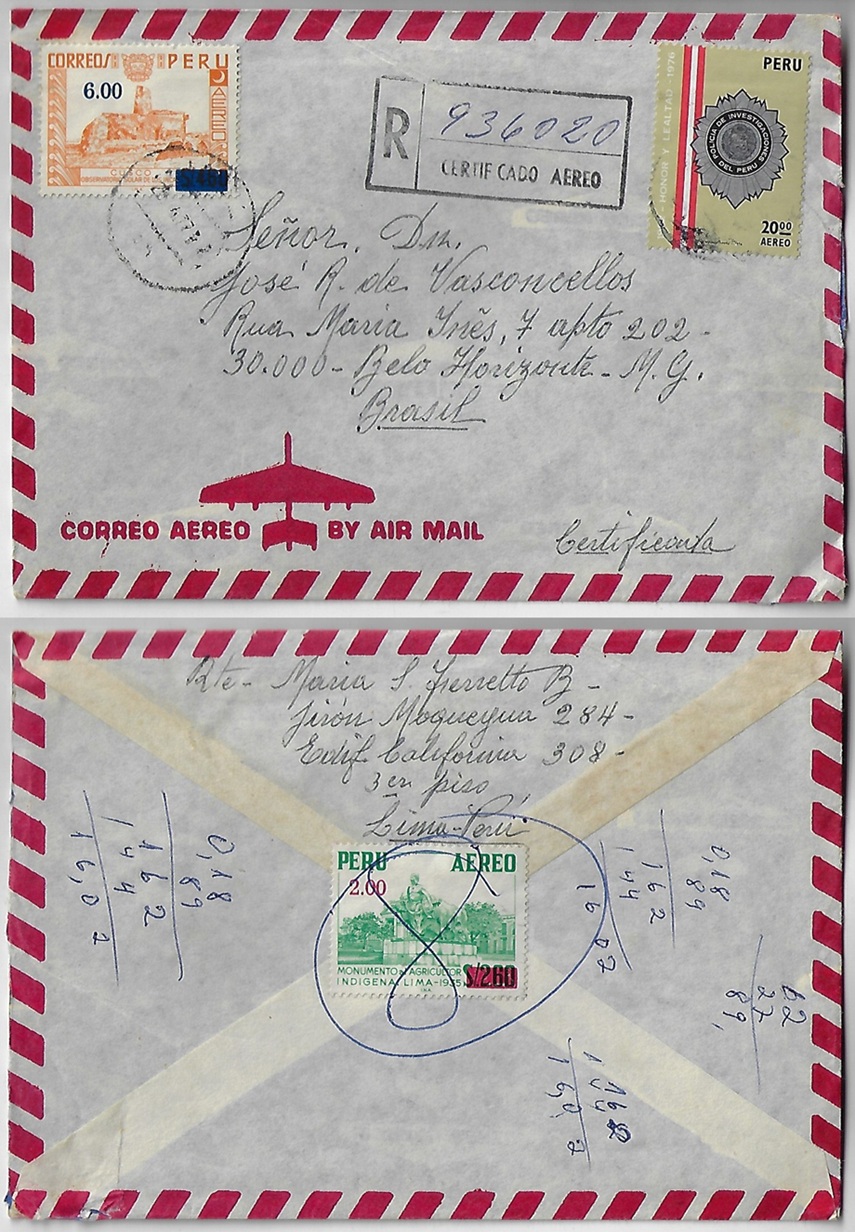 CORREOS PERU
6.00
AEREO
CUSCO
OBSERVATORIO SOLAR INCA
R
936020
CERTIFICADO AEREO
PERU
HONOR Y LEALTAD - 1976
POLICIA DE INVESTIGACIONES
DEL PERU
20.00
AEREO
Señor. Dn.
José R. de Vasconcellos
Rua Maria Inês, 7 apto 202 -
30.000 - Belo Horizonte - M.G.
Brasil
CORREO AEREO BY AIR MAIL
Certificada
Rte - Maria S B -
Jirón Moquegua 284 -
Edif California 308 -
3er piso
Lima - Perú
PERU AEREO
2.00
MONUMENTO AGRICULTOR
INDIGENA LIMA - 1935
S/2.60
0,18
89
162
144
16,02
0,18
89
162
144
16 02
62
27
89,
162
144
16,0,2